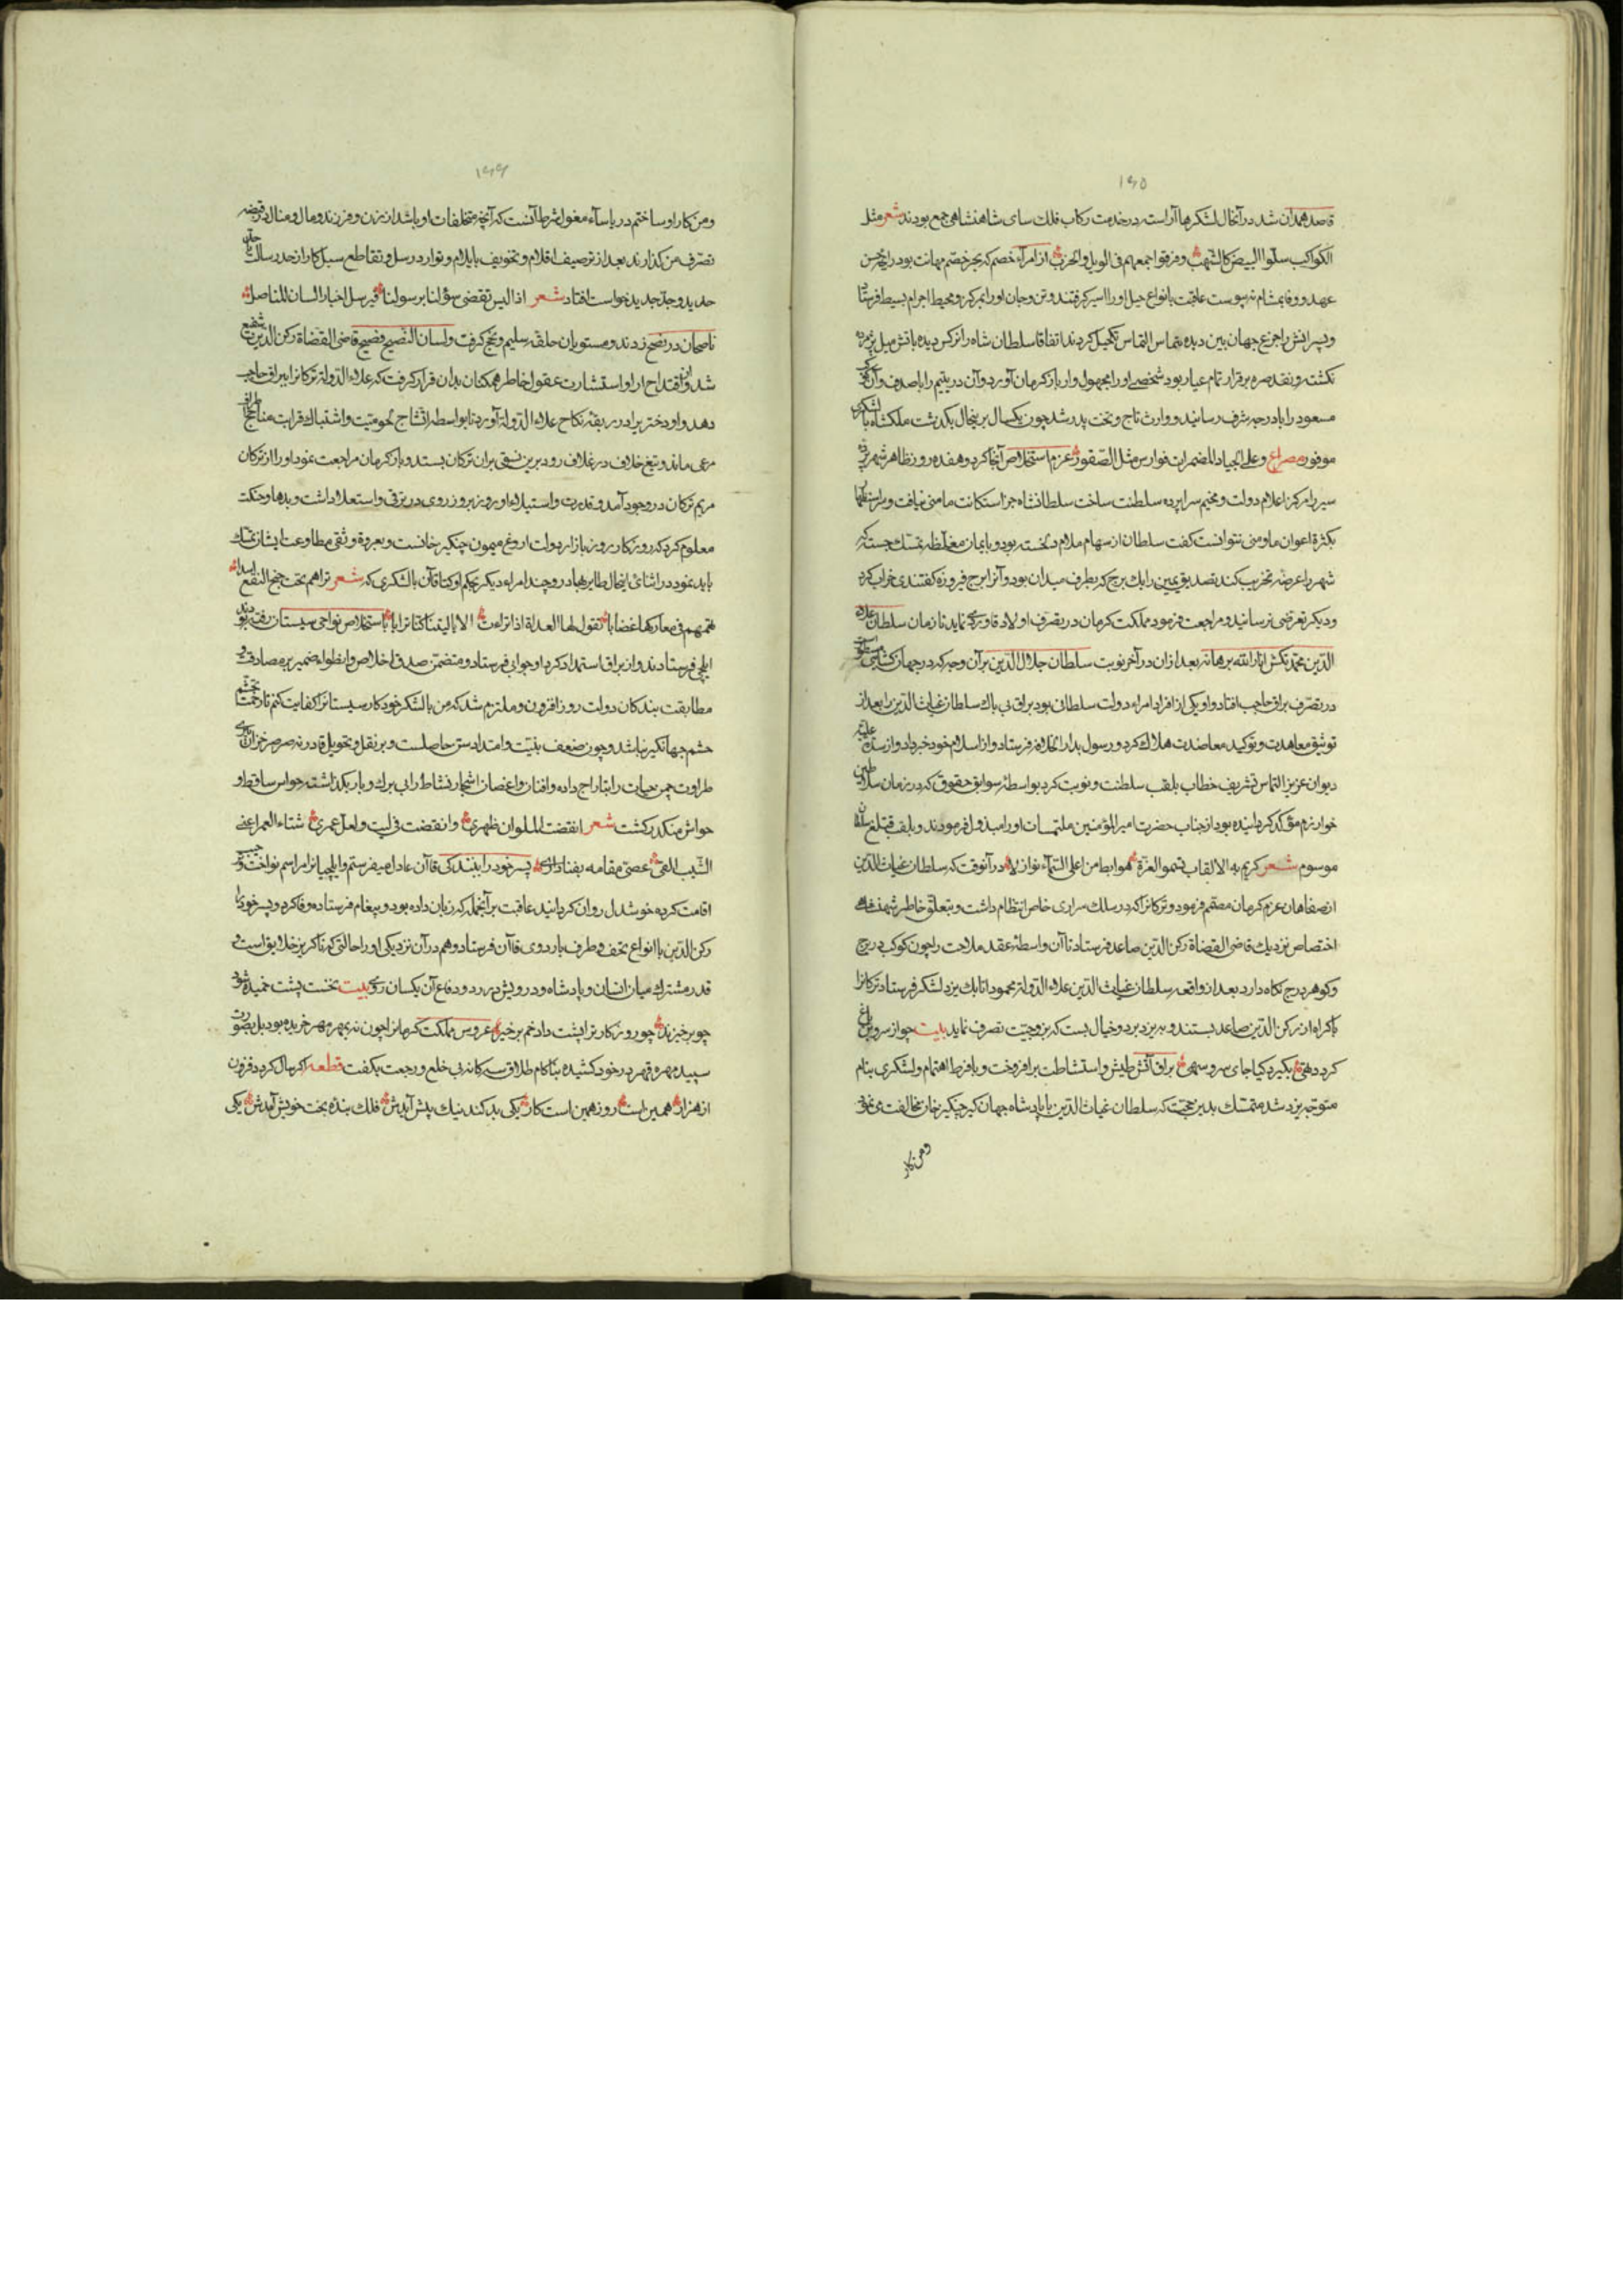 ۱۶۵
قاصد همدان شد در آنحال لشکرها آراسته در خدمت رکاب فلک سای شاهنشاهی جمع بودند شعر مثل
الکواکب سلّوا البیض کالشّهب و مزقوا جمعهم فی الویل والحرب از امراء خصم که بجر خصم مهانت بود رایحهٔ حسن
عهد و وفا بمشام نه پیوست عاقبت بانواع حیل او را اسیر گرفتند و تن و جان او را بمرکز و محیط اجرام بسیط فرستاد
و پسرانش را جزع جهان بین دیده بماس التماس تکحیل کردند اتفاقا سلطان شاه را نرکس دیده باتش میل پژمرده
نکشت و نقد صره برقرار تمام عیار بود شخصی او را مجهول وار باز کرمان آورد و آن در یتیم را با صدف و آن
مسعود را با درجه شرف رسانید و وارث تاج و تخت پدر شد چون یکسال برینحال بگذشت ملکشاه با لشکری
موفور مصراع و علی الجیاد المضمرات فوارس مثل الصّقور عزم استخلاص آنجا کرد و هفده روز ظاهر شهر
سیر را مرکز اعلام دولت و مخیم سراپرده سلطنت ساخت سلطانشاه جز استکانت مامنی نیافت و براستظهار
بکثرة اعوان ماومنی نتوانست گفت سلطان از سهام ملام دلخسته بود و بایمان مغلّظه تمسّک جسته که
شهر را عرضه تخریب کند تصدیق یمین را یک برج که بطرف میدان بود و آنرا برج فیروزه کفتندی خراب کرد
و دیکر تعرضی نرسانید و مراجعت فرمود مملکت کرمان در تصرف اولاد قاورد نماید تا زمان سلطان علاء
الدّین محمّد تکش انار الله برهانه بعد از ان در آخر نوبت سلطان جلال الدّین بر آن وجه که در جهان کشای مسطور است
در تصرّف براق حاجب افتاد و او یکی از افراد امراء دولت سلطانی بود براق بی باک سلطان غیاث الدّین را بعد از
توثیق معاهدت و توکید معاضدت هلاک کرد و رسول بدار الخلافه فرستاد و از اسلام خود خبر داد و از سدّه علیّه
دیوان عزیز التماس تشریف خطاب بلقب سلطنت و نوبت کرد بواسطه سوابق حقوق که در زمان سلاطین
خوارزم مؤکّد کردانیده بود از جناب حضرت امیر المؤمنین ملتمسات او را مبذول فرمودند و بلقب قتلغ سلطان
موسوم شعر کریم به الالقاب تسمو العزّة هوابط من اعلی السّماء نوازلا در آنوقت که سلطان غیاث الدّین
از صفاهان عزم کرمان مصمّم فرمود و ترکانرا که در سلک سراری خاص انتظام داشت و بتعلّق خاطر شهنشاه
اختصاص نزدیک قاضی القضاة رکن الدّین صاعد فرستاد تا آن واسطه عقد ملاحت را چون کوکب در برج
و کوهر در درج نکاه دارد بعد از واقعه سلطان غیاث الدّین علاء الدّولة محمود اتابک یزد لشکر فرستاد ترکانرا
باکراه از رکن الدّین صاعد بستند و به یزد برد و خیال بست که بزوجیّت تصرف نماید بیت چو از سرو بن باغ
کردد تهی بگیرد کیا جای سرو سهی براق آتش طیش و استشاطت برافروخت و با فرط اهتمام و لشکری بنام
متوجّه یزد شد متمسّک بدین حجّت که سلطان غیاث الدّین با پادشاه جهان کیر چنکیز خان مخالفت می نمود
و من کار
۱۶۶
و من کار او ساختم در یاساء مغول شرط آنست که آنچه متخلفات او باشد از زن و فرزند و مال و منال در قبضه
تصرّف من گذارند بعد از ترصیف اقلام و تخویف بایلام و توارد رسل و تقاطع سبل کار از حد رسالت
حدید وجد جدید خواست افتاد شعر اذا لیس تقضی سؤلنا برسولنا فیرسل اخبار السان المناصل
ناصحان در نصح زدند و مستوبان حلقه سلیم و نجح گرفت و لسان النّصیح فصیح قاضی القضاة رکن الدّین شفیع
شد و از اقتداح آرا و استشارت عقول خاطر همکنان بدان قرار گرفت که علاء الدّوله ترکانرا ببراق حاجب
دهد و او دختر براق در ربقه نکاح علاء الدّوله آورد تا بواسطه اتّشاج لحومتیت و اشتباک قرابت مناجح
مرعی ماند و تیغ خلاف در غلاف رود برین نسق بران ترکان بستد و باز کرمان مراجعت نمود او را از ترکان
مریم ترکان در وجود آمد و قدرت و استیلاء او روز بروز روی در ترقی و استعلا داشت و بدها و حنکت
معلوم کرد که روزکار روز بازار دولت اروغ میمون چنکیز خانست و بعروة وثقی مطاوعت ایشان تمسّک
باید نمود در اثنای اینحال طایر بهادر و چند امراء دیکر بحکم اوکتا قاآن با لشکری که شعر تراهم تحت جنح النقع اسدا
تمهم فی معارکها غضابا تقول لها العداة اذا تراءت الا یا لیتنا کنّا ترابا باستخلاص نواحی سیستان رفته بودند
ایلچی فرستادند و از براق استمداد کرد او جوابی فرستاد و متضمّن صدق اخلاص و انطواء ضمیر بر مصادقت
مطابقت بندکان دولت روز افزون و ملتزم شد که من با لشکر خود کار سیستانرا کفایت کنم تا زحمت تجشّم
حشم جهانکیر نباشد و چون ضعف بنیّت و امتداد سنّ حاصلست و بر نقل و تحویل قادر نه صرصر خزان
طراوت چمن حیات را بتاراج داده و افنان و اغصان اشجار نشاط را بی برک و بار بگذاشته حواس ساقط و
حواس منکدر کشت شعر انقضت الملوان ظهری وانقضت فی لیت و لعل عمری شتاء العمر اعنی
الشّیب الفی عصی مقامه بفناء پسر خود را ببندکی قاآن عادل میفرستم و ایلچیانرا مراسم نواخت و
اقامت کرده خوشدل روان کردانید عاقبت بر آنجمله که زبان داده بود و پیغام فرستاده وفا کرد و پسر خود را
رکن الدّین با انواع تحف و طرف باردوی قاآن فرستاد و هم در آن نزدیکی او را حالتی که ناکزیر خلایق است و
قدر مشترک میان انسان و پادشاه و درویش در درد و دفاع آن یکسان روی بیت نخست پشت خمیده شود
چو برخیزند چو روزکار ترا پشت داد خم برخیز عروس مملکت کرمانرا چون نه بمهر مهر خریده بود بل بصورت
سپیده مهره قهر در خود کشیده بناکام طلاق سه کانه بی خلع و رجعت بگفت قطعه اکر سال کردد فزون
از هزار همین است روز همین است کار یکی بد کند نیک پیش آیدش فلک بنده بخت خویش آیدش یکی